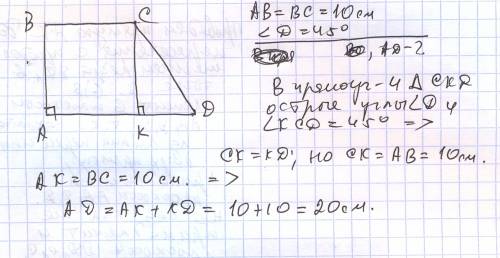 B C
A K D
AB = BC = 10 см
∠D = 45°
AD - ?
В прямоуг-м Δ CKD
острые углы ∠D и
∠KCD = 45° =>
CK = KD, но CK = AB = 10 см.
AK = BC = 10 см. =>
AD = AK + KD = 10 + 10 = 20 см.